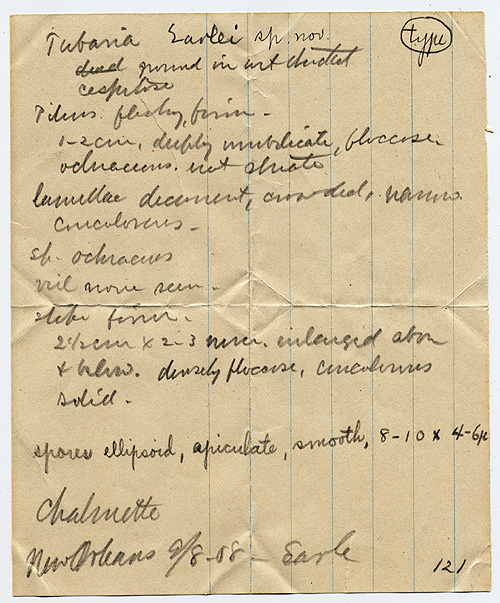 Tubaria Earlei sp. nov. (type)
dead ground in wet
cespitose
Pileus fleshy, firm -
1-2 cm, deeply umbilicate, floccose
ochraceous. not striate
lamellae decurrent, crowded, narrow
concolorous -
sp. ochraceus
veil none seen -
stipe firm -
2½ cm x 2-3 mm. enlarged above
& below. densely floccose, concolorous
solid -
spores ellipsoid, apiculate, smooth, 8-10 x 4-6µ
Chalmette
New Orleans 9/8-08 - Earle
121